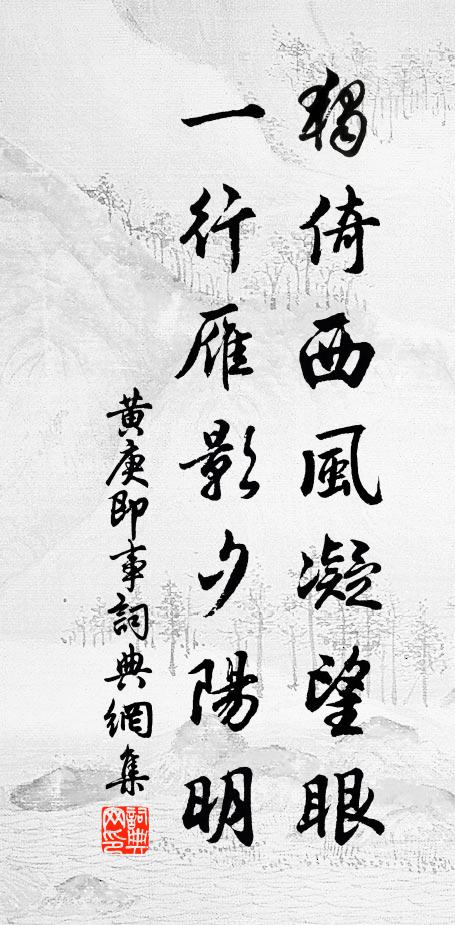 獨倚西風凝望眼
一行雁影夕陽明
黃庚即事詞典網集
詞典網印